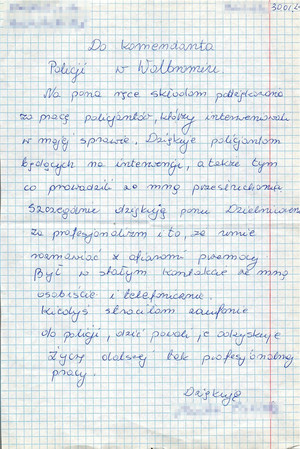 30.01.
Do komendanta
Policji w Wolbromiu.
Na pana ręce składam podziękowania
za pracę policjantów, którzy interweniowali
w mojej sprawie. Dziękuję policjantom
będących na interwencji, a także tym
co prowadzili ze mną przesłuchania
Szczególnie dziękuję panu Dzielnicowemu
za profesjonalizm i to, że umie
rozmawiać z ofiarami przemocy
Był w stałym kontakcie ze mną
osobiście i telefonicznie.
Kiedyś straciłam zaufanie
do policji, dziś powoli je odzyskuję
Życzę dalszej tak profesjonalnej
pracy.
Dziękuję